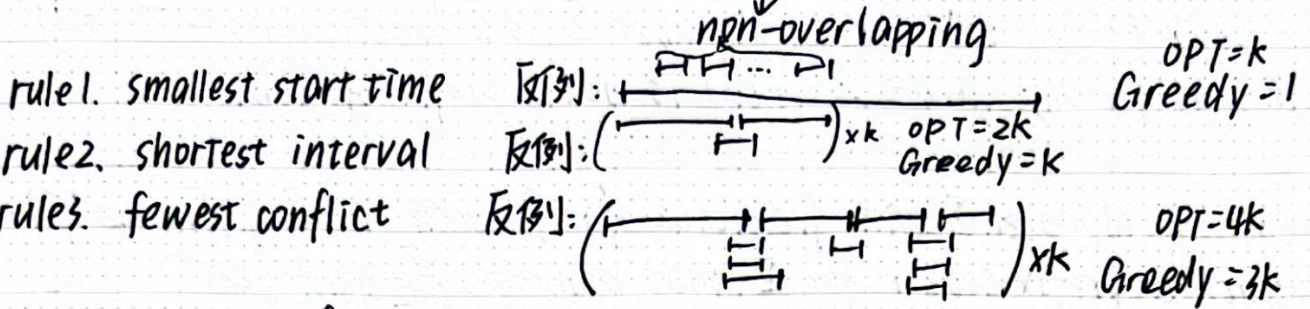 non-overlapping
...
OPT=k
rule1. smallest start time 反例: Greedy=1
rule2. shortest interval 反例: ( ) xk OPT=2k
Greedy=k
rule3. fewest conflict 反例: ( ) xk OPT=4k
Greedy=3k